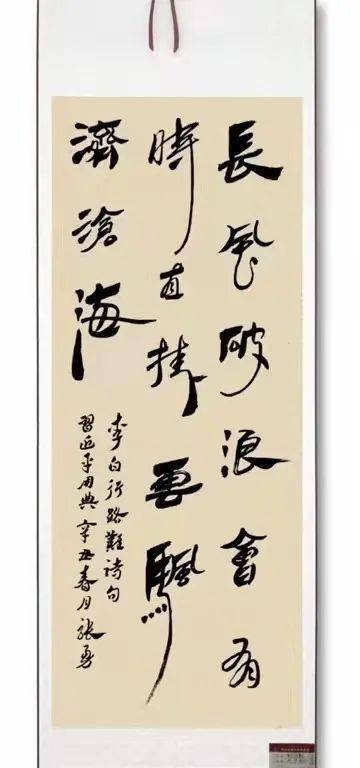 長風破浪會有
時直挂雲颿
濟滄海
李白行路難詩句
習近平用典辛丑春月張勇